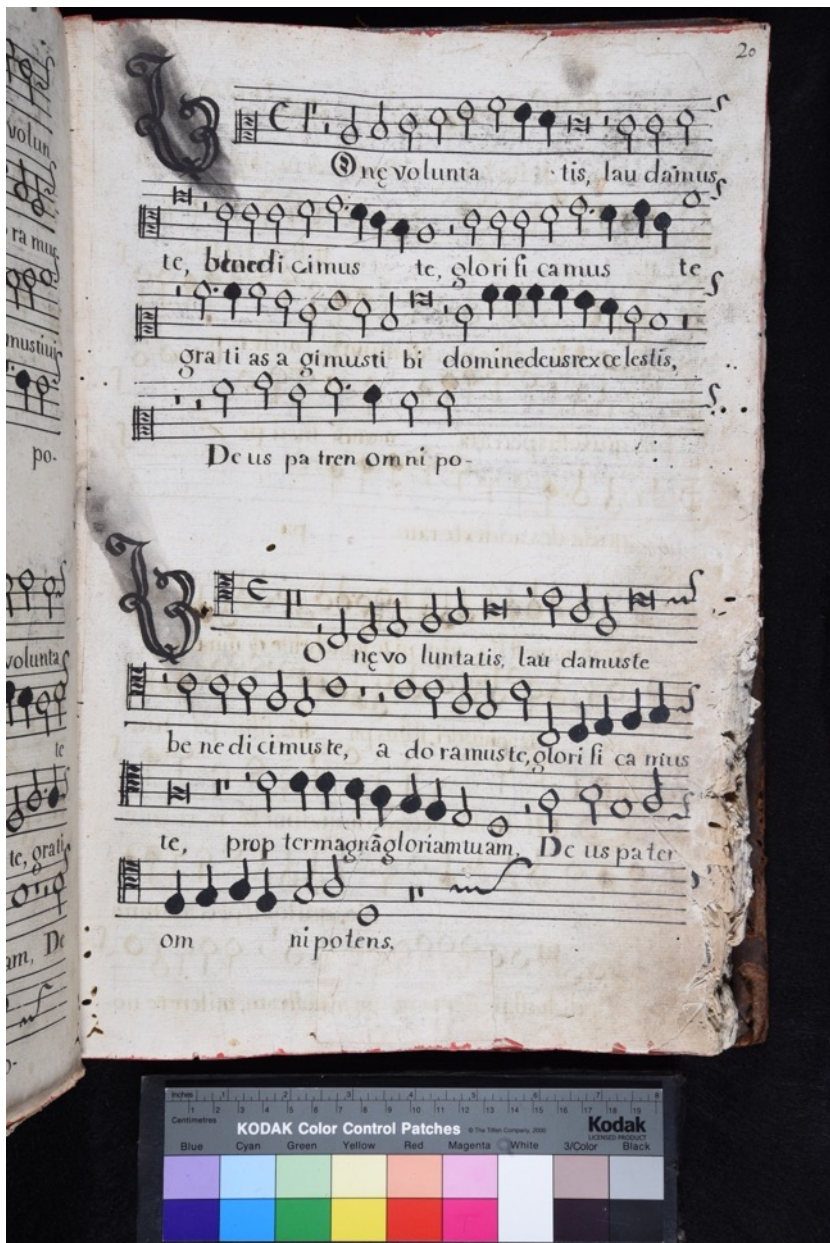 20
volun
ra mus
mustiui
po-
volunta
te
te, grati
am, De
B
One volunta tis, lau damus
te, benedi cimus te, glori fi camus te
gra ti as a gimusti bi dominedeusrexce lestis,
De us pa tren omni po-
B
nevo luntatis, lau damuste
be ne di cimus te, a do ramus te, glori fi ca mus
te, prop termagnãgloriamtuam, De us pa ter
om nipotens,
Inches 1 2 3 4 5 6 7 8
Centimetres 1 2 3 4 5 6 7 8 9 10 11 12 13 14 15 16 17 18 19
KODAK Color Control Patches © The Tiffen Company, 2000 Kodak
LICENSED PRODUCT
Blue Cyan Green Yellow Red Magenta White 3/Color Black